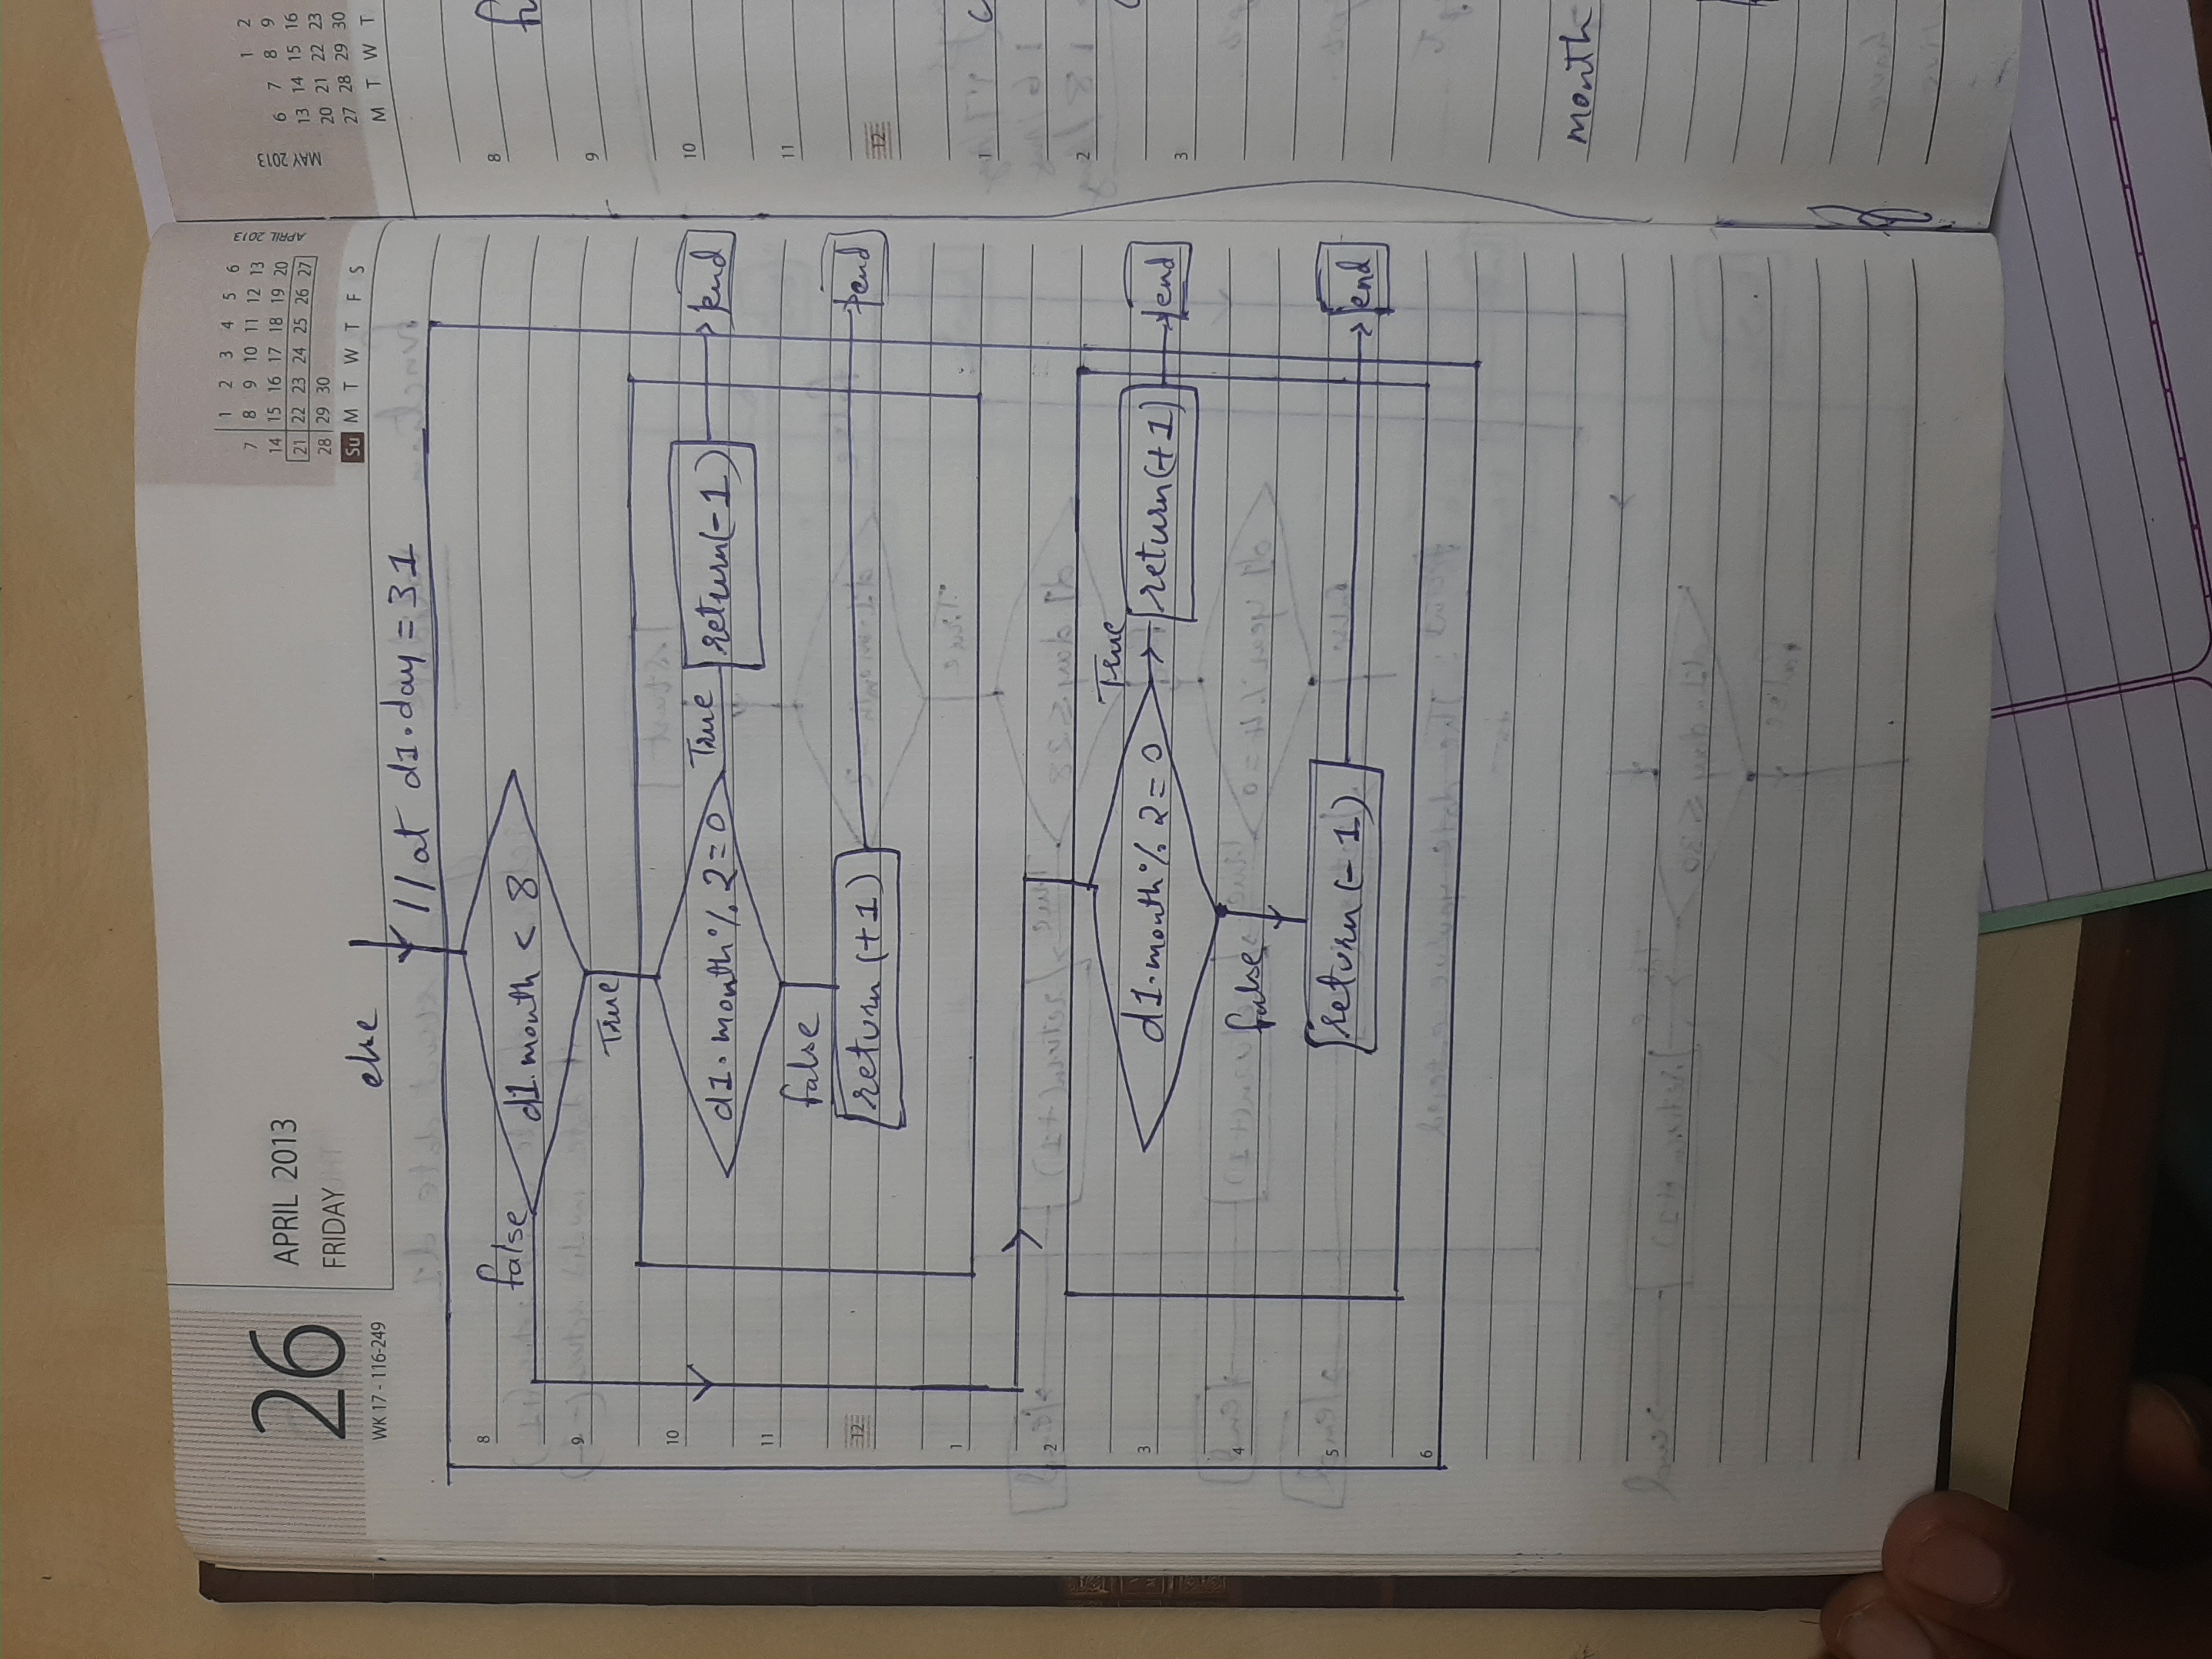 26
APRIL 2013
FRIDAY
WK 17 - 116-249
1 2 3 4 5 6
7 8 9 10 11 12 13
14 15 16 17 18 19 20
21 22 23 24 25 26 27
28 29 30
Su M T W T F S
APRIL 2013
else
// at d1.day = 31
8
false
d1.month < 8
9
True
10
d1.month % 2=0
True
return(-1)
end
11
false
12
return (+1)
end
1
2
3
d1.month % 2=0
True
return(+1)
end
4
false
5
return (-1)
end
6
MAY 2013
1 2
6 7 8 9
13 14 15 16
20 21 22 23
27 28 29 30
M T W T
8
9
10
11
12
1
2
3
month